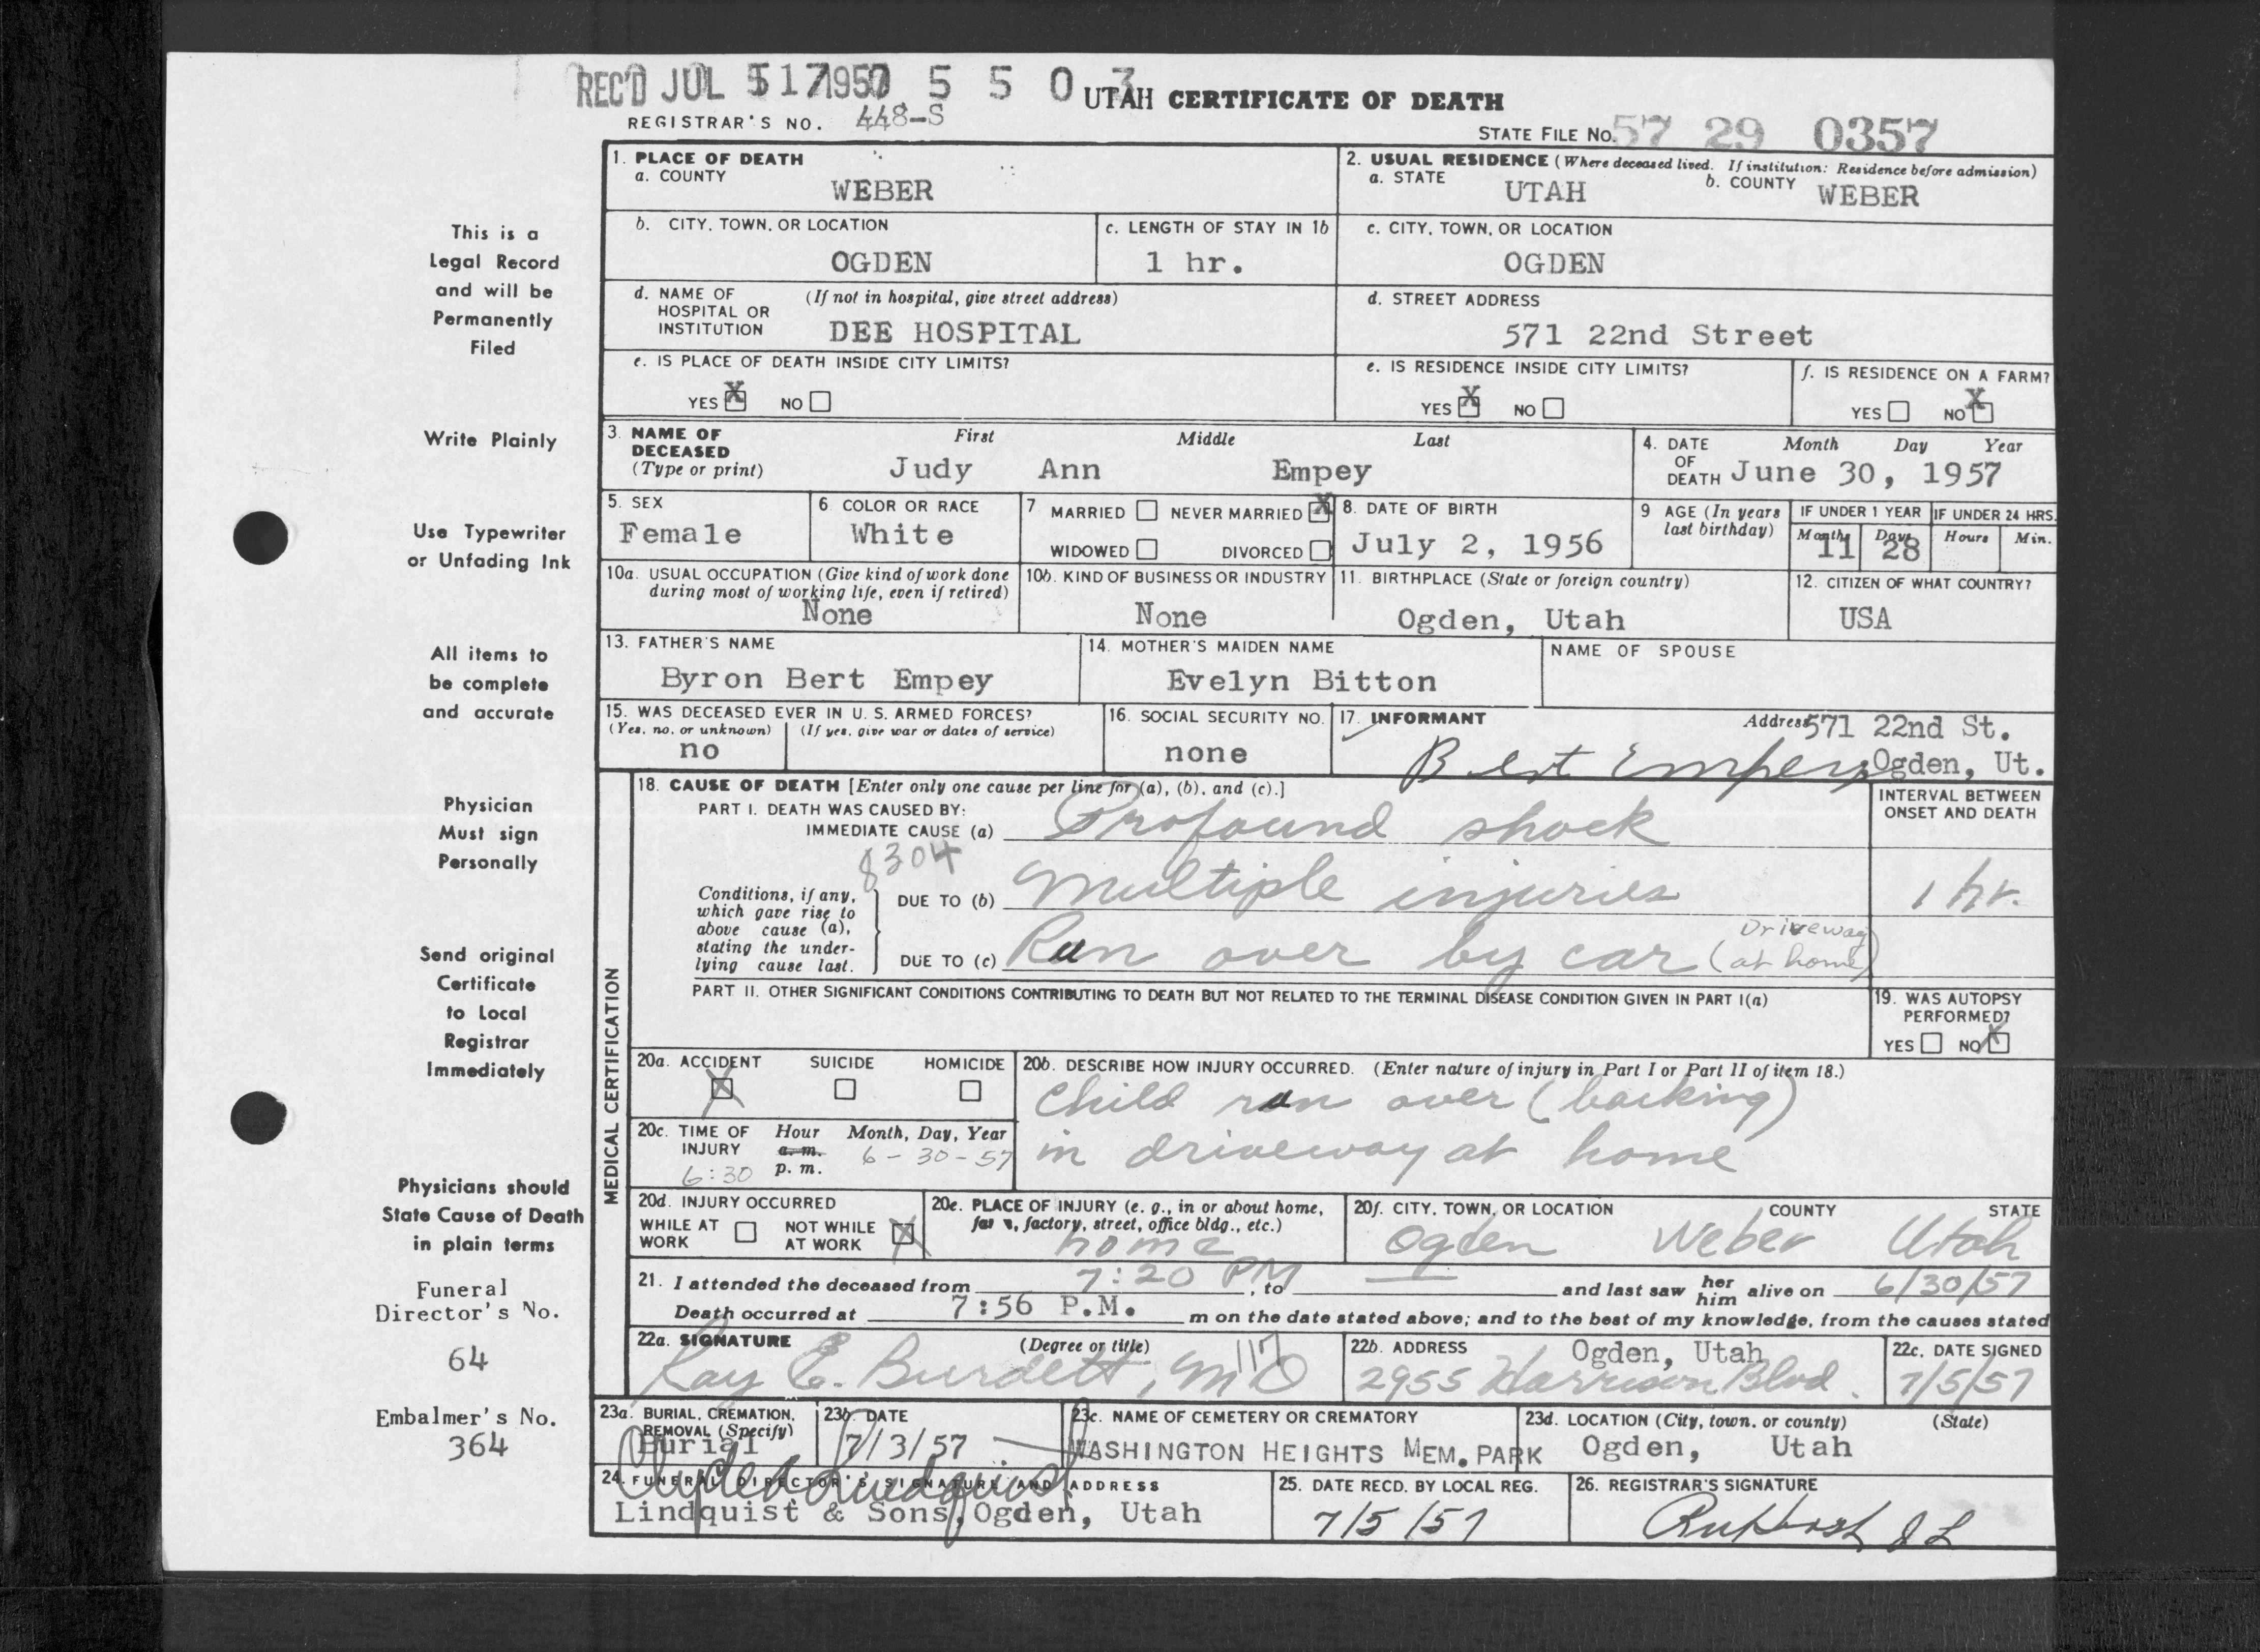 REC'D JUL 1957 5 5 0 3 UTAH CERTIFICATE OF DEATH
REGISTRAR'S NO. 448-S
STATE FILE NO. 57 29 0357
This is a
Legal Record
and will be
Permanently
Filed
Write Plainly
Use Typewriter
or Unfading Ink
All items to
be complete
and accurate
Physician
Must sign
Personally
Send original
Certificate
to Local
Registrar
Immediately
Physicians should
State Cause of Death
in plain terms
Funeral
Director's No.
64
Embalmer's No.
364
1. PLACE OF DEATH
a. COUNTY
WEBER
2. USUAL RESIDENCE (Where deceased lived. If institution: Residence before admission)
a. STATE UTAH b. COUNTY WEBER
b. CITY, TOWN, OR LOCATION
OGDEN
c. LENGTH OF STAY IN 1b
1 hr.
c. CITY, TOWN, OR LOCATION
OGDEN
d. NAME OF HOSPITAL OR INSTITUTION (If not in hospital, give street address)
DEE HOSPITAL
d. STREET ADDRESS
571 22nd Street
e. IS PLACE OF DEATH INSIDE CITY LIMITS?
YES X NO
e. IS RESIDENCE INSIDE CITY LIMITS?
YES X NO
f. IS RESIDENCE ON A FARM?
YES NO X
3. NAME OF DECEASED (Type or print) First Middle Last
Judy Ann Empey
4. DATE OF DEATH Month Day Year
June 30, 1957
5. SEX
Female
6. COLOR OR RACE
White
7 MARRIED NEVER MARRIED X
WIDOWED DIVORCED
8. DATE OF BIRTH
July 2, 1956
9 AGE (In years last birthday)
IF UNDER 1 YEAR IF UNDER 24 HRS.
Months 11 Days 28 Hours Min.
10a. USUAL OCCUPATION (Give kind of work done during most of working life, even if retired)
None
10b. KIND OF BUSINESS OR INDUSTRY
None
11. BIRTHPLACE (State or foreign country)
Ogden, Utah
12. CITIZEN OF WHAT COUNTRY?
USA
13. FATHER'S NAME
Byron Bert Empey
14. MOTHER'S MAIDEN NAME
Evelyn Bitton
NAME OF SPOUSE
15. WAS DECEASED EVER IN U. S. ARMED FORCES?
(Yes, no, or unknown) (If yes, give war or dates of service)
no
16. SOCIAL SECURITY NO.
none
17. INFORMANT Address 571 22nd St.
Bert Empey Ogden, Ut.
MEDICAL CERTIFICATION
18. CAUSE OF DEATH [Enter only one cause per line for (a), (b), and (c).]
INTERVAL BETWEEN
ONSET AND DEATH
PART I. DEATH WAS CAUSED BY:
IMMEDIATE CAUSE (a) Profound shock
8304
Conditions, if any,
which gave rise to
above cause (a),
stating the under-
lying cause last.
DUE TO (b) Multiple injuries 1 hr.
DUE TO (c) Run over by car (Driveway at home)
PART II. OTHER SIGNIFICANT CONDITIONS CONTRIBUTING TO DEATH BUT NOT RELATED TO THE TERMINAL DISEASE CONDITION GIVEN IN PART I(a)
19. WAS AUTOPSY PERFORMED?
YES NO X
20a. ACCIDENT SUICIDE HOMICIDE
X
20b. DESCRIBE HOW INJURY OCCURRED. (Enter nature of injury in Part I or Part II of item 18.)
Child run over (backing)
in driveway at home
20c. TIME OF INJURY Hour Month, Day, Year
a. m.
6:30 p. m. 6-30-57
20d. INJURY OCCURRED
WHILE AT WORK NOT WHILE AT WORK X
20e. PLACE OF INJURY (e. g., in or about home, farm, factory, street, office bldg., etc.)
home
20f. CITY, TOWN, OR LOCATION COUNTY STATE
Ogden Weber Utah
21. I attended the deceased from 7:20 PM, to — and last saw her him alive on 6/30/57
Death occurred at 7:56 P.M. m on the date stated above; and to the best of my knowledge, from the causes stated
22a. SIGNATURE (Degree or title)
Ray E. Burdett, MD 117
22b. ADDRESS Ogden, Utah
2955 Harrison Blvd.
22c. DATE SIGNED
7/5/57
23a. BURIAL, CREMATION, REMOVAL (Specify)
Burial
23b. DATE
7/3/57
23c. NAME OF CEMETERY OR CREMATORY
WASHINGTON HEIGHTS MEM. PARK
23d. LOCATION (City, town, or county) (State)
Ogden, Utah
24. FUNERAL DIRECTOR'S SIGNATURE AND ADDRESS
Lindquist & Sons, Ogden, Utah
25. DATE RECD. BY LOCAL REG.
7/5/57
26. REGISTRAR'S SIGNATURE